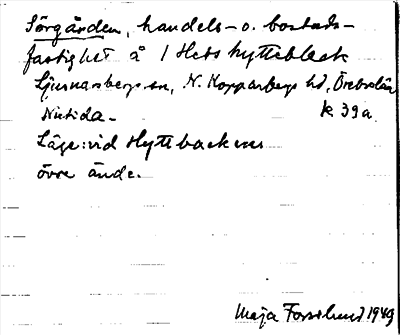 Sörgården, handels- o. bostads-
fastighet å 1 Hets hyttebleck
Ljusnarsbergs sn, N. Kopparbergs hd, Örebro län
Nutida. k 39 a
Läge: vid Hyttbackens
övre ände.
Maja Forslund 1949